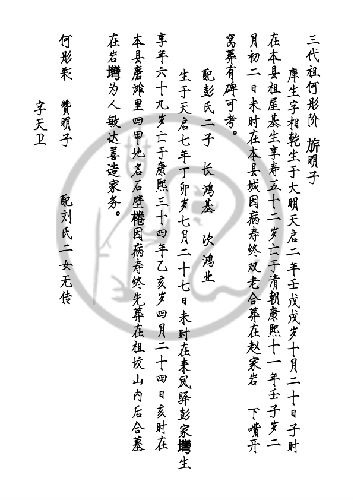 三代祖何彤阶 旂明子
庠生字相乾生于大明天启二年壬戌岁十月二十日子时
在本县祖屋基生享寿五十二岁亡于清朝康熙十一年壬子岁二
月初二日未时在本县城因病寿终双老合葬在赵家岩 下嘴开
窝葬有碑可考。
配彭氏二子 长鸿基 次鸿业
生于天启七年丁卯岁七月二十七日未时在来凤驿彭家塆生
享年六十九岁亡于康熙三十四年乙亥岁四月二十四日亥时在
本县唐滩里四甲地名石壁 因病寿终先葬在祖坟山内后合墓
在岩塆为人敏达善造家务。
何彤聚 赞明子 配刘氏二女无传
字天卫